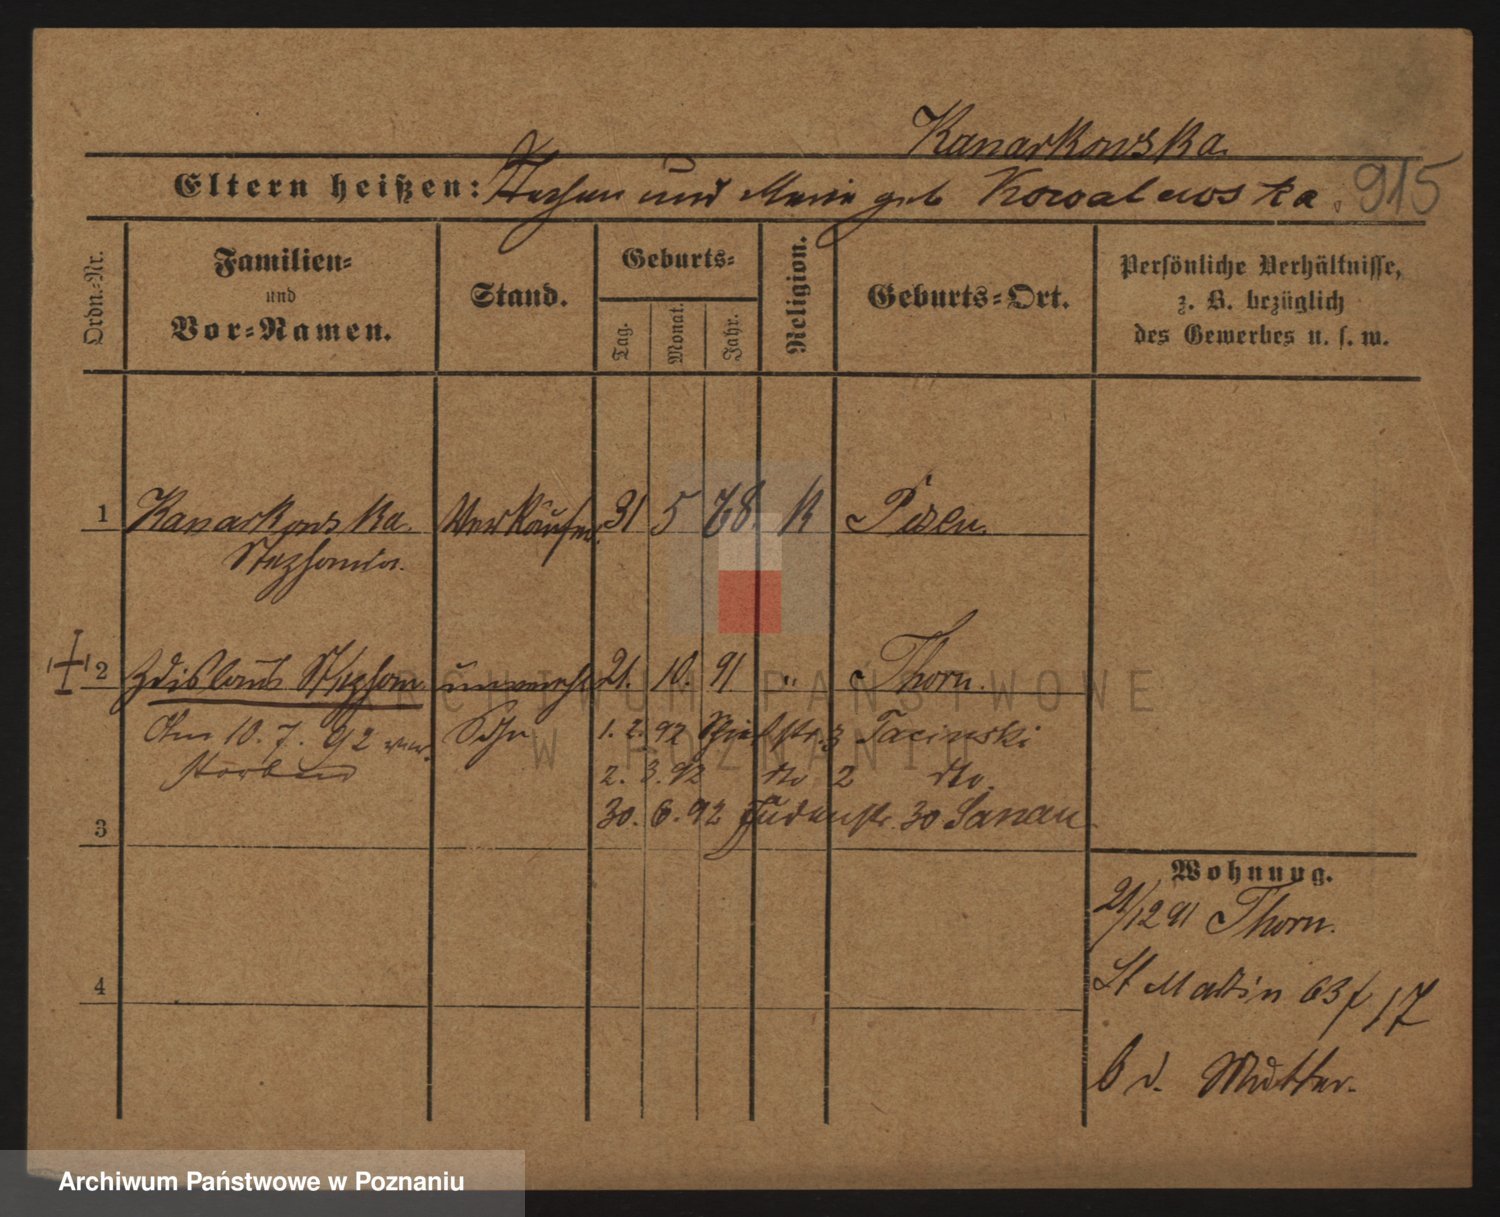 Kanarkowska
Eltern heißen: Stephan und Marie geb Kowalewska. 915
Ordn.-Nr.
Familien-
und
Vor-Namen.
Stand.
Geburts-
Tag.
Monat.
Jahr.
Religion.
Geburts-Ort.
Persönliche Verhältnisse,
z. B. bezüglich
des Gewerbes u. s. w.
1 Kanarkowska Verkäuferin 31 5 68 K Posen
Stephania.
2 Zdislaus Stephan unehel 21. 10. 91 " Thorn.
Am 10. 7. 92 ver-
storben
Sohn
1. 2. 92 str. 3 Tacinski
2. 3. 92 dto 2 dto
30. 6. 92 Judenstr. 30
3
4
Wohnung.
21/12 91 Thorn.
St Martin 63 17
b d. Mutter.
ARCHIWUM PAŃSTWOWE
W POZNANIU
Archiwum Państwowe w Poznaniu